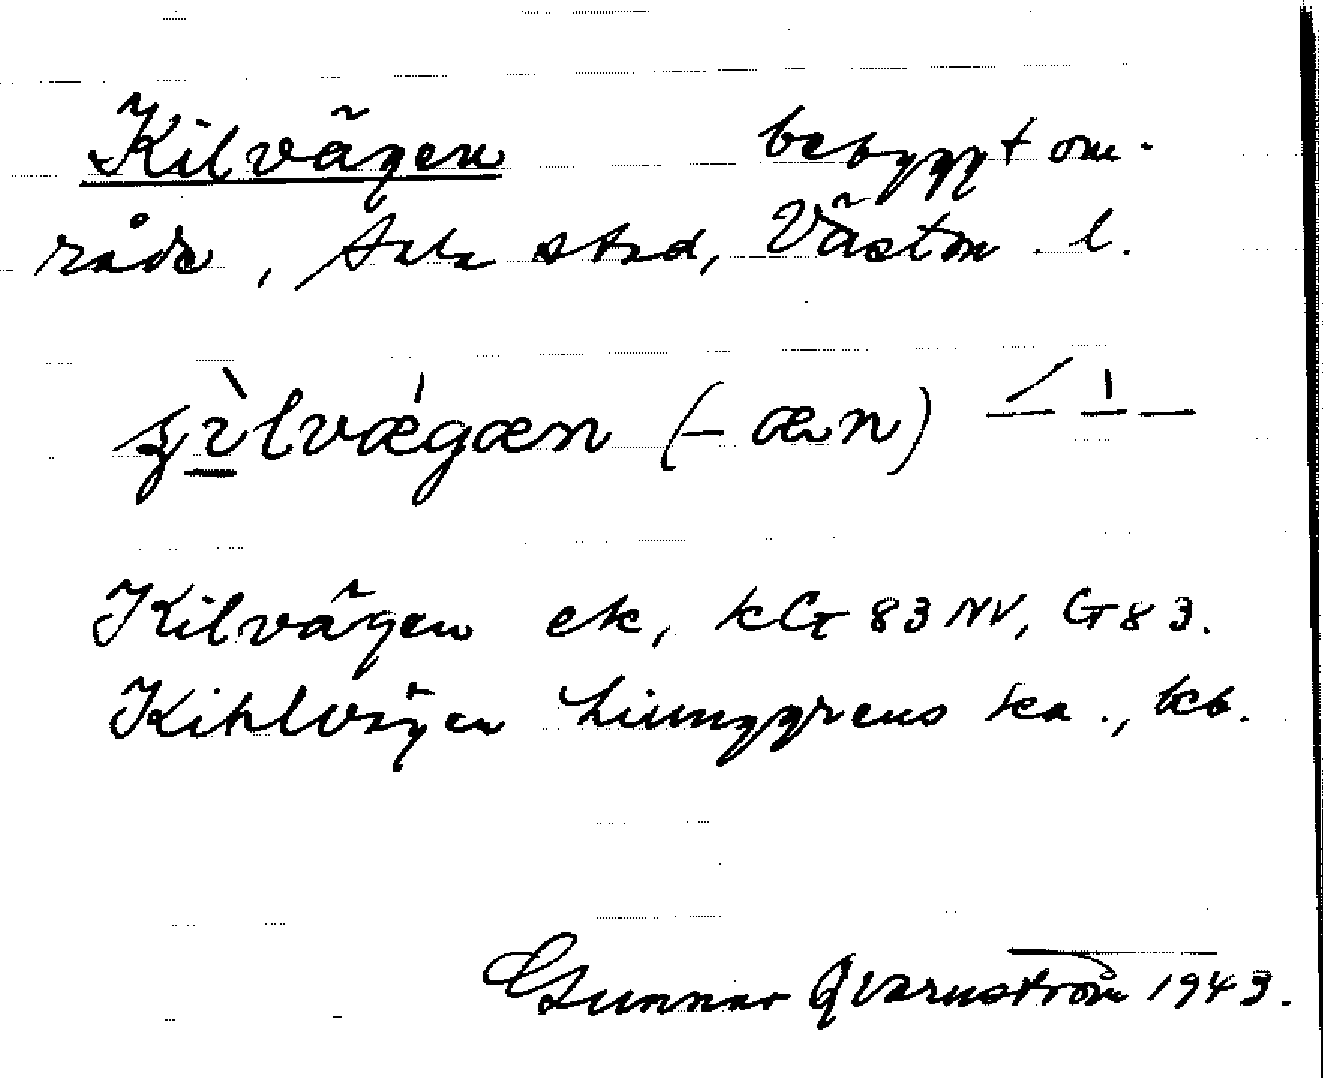 Kilvägen bebyggt om-
råde, Sala stad, Västm. l.
Kilvägen ek, kG 83 NV, G 83.
Kihlvägen Liunggrens ka., kb.
Gunnar Qvarnström 1943.